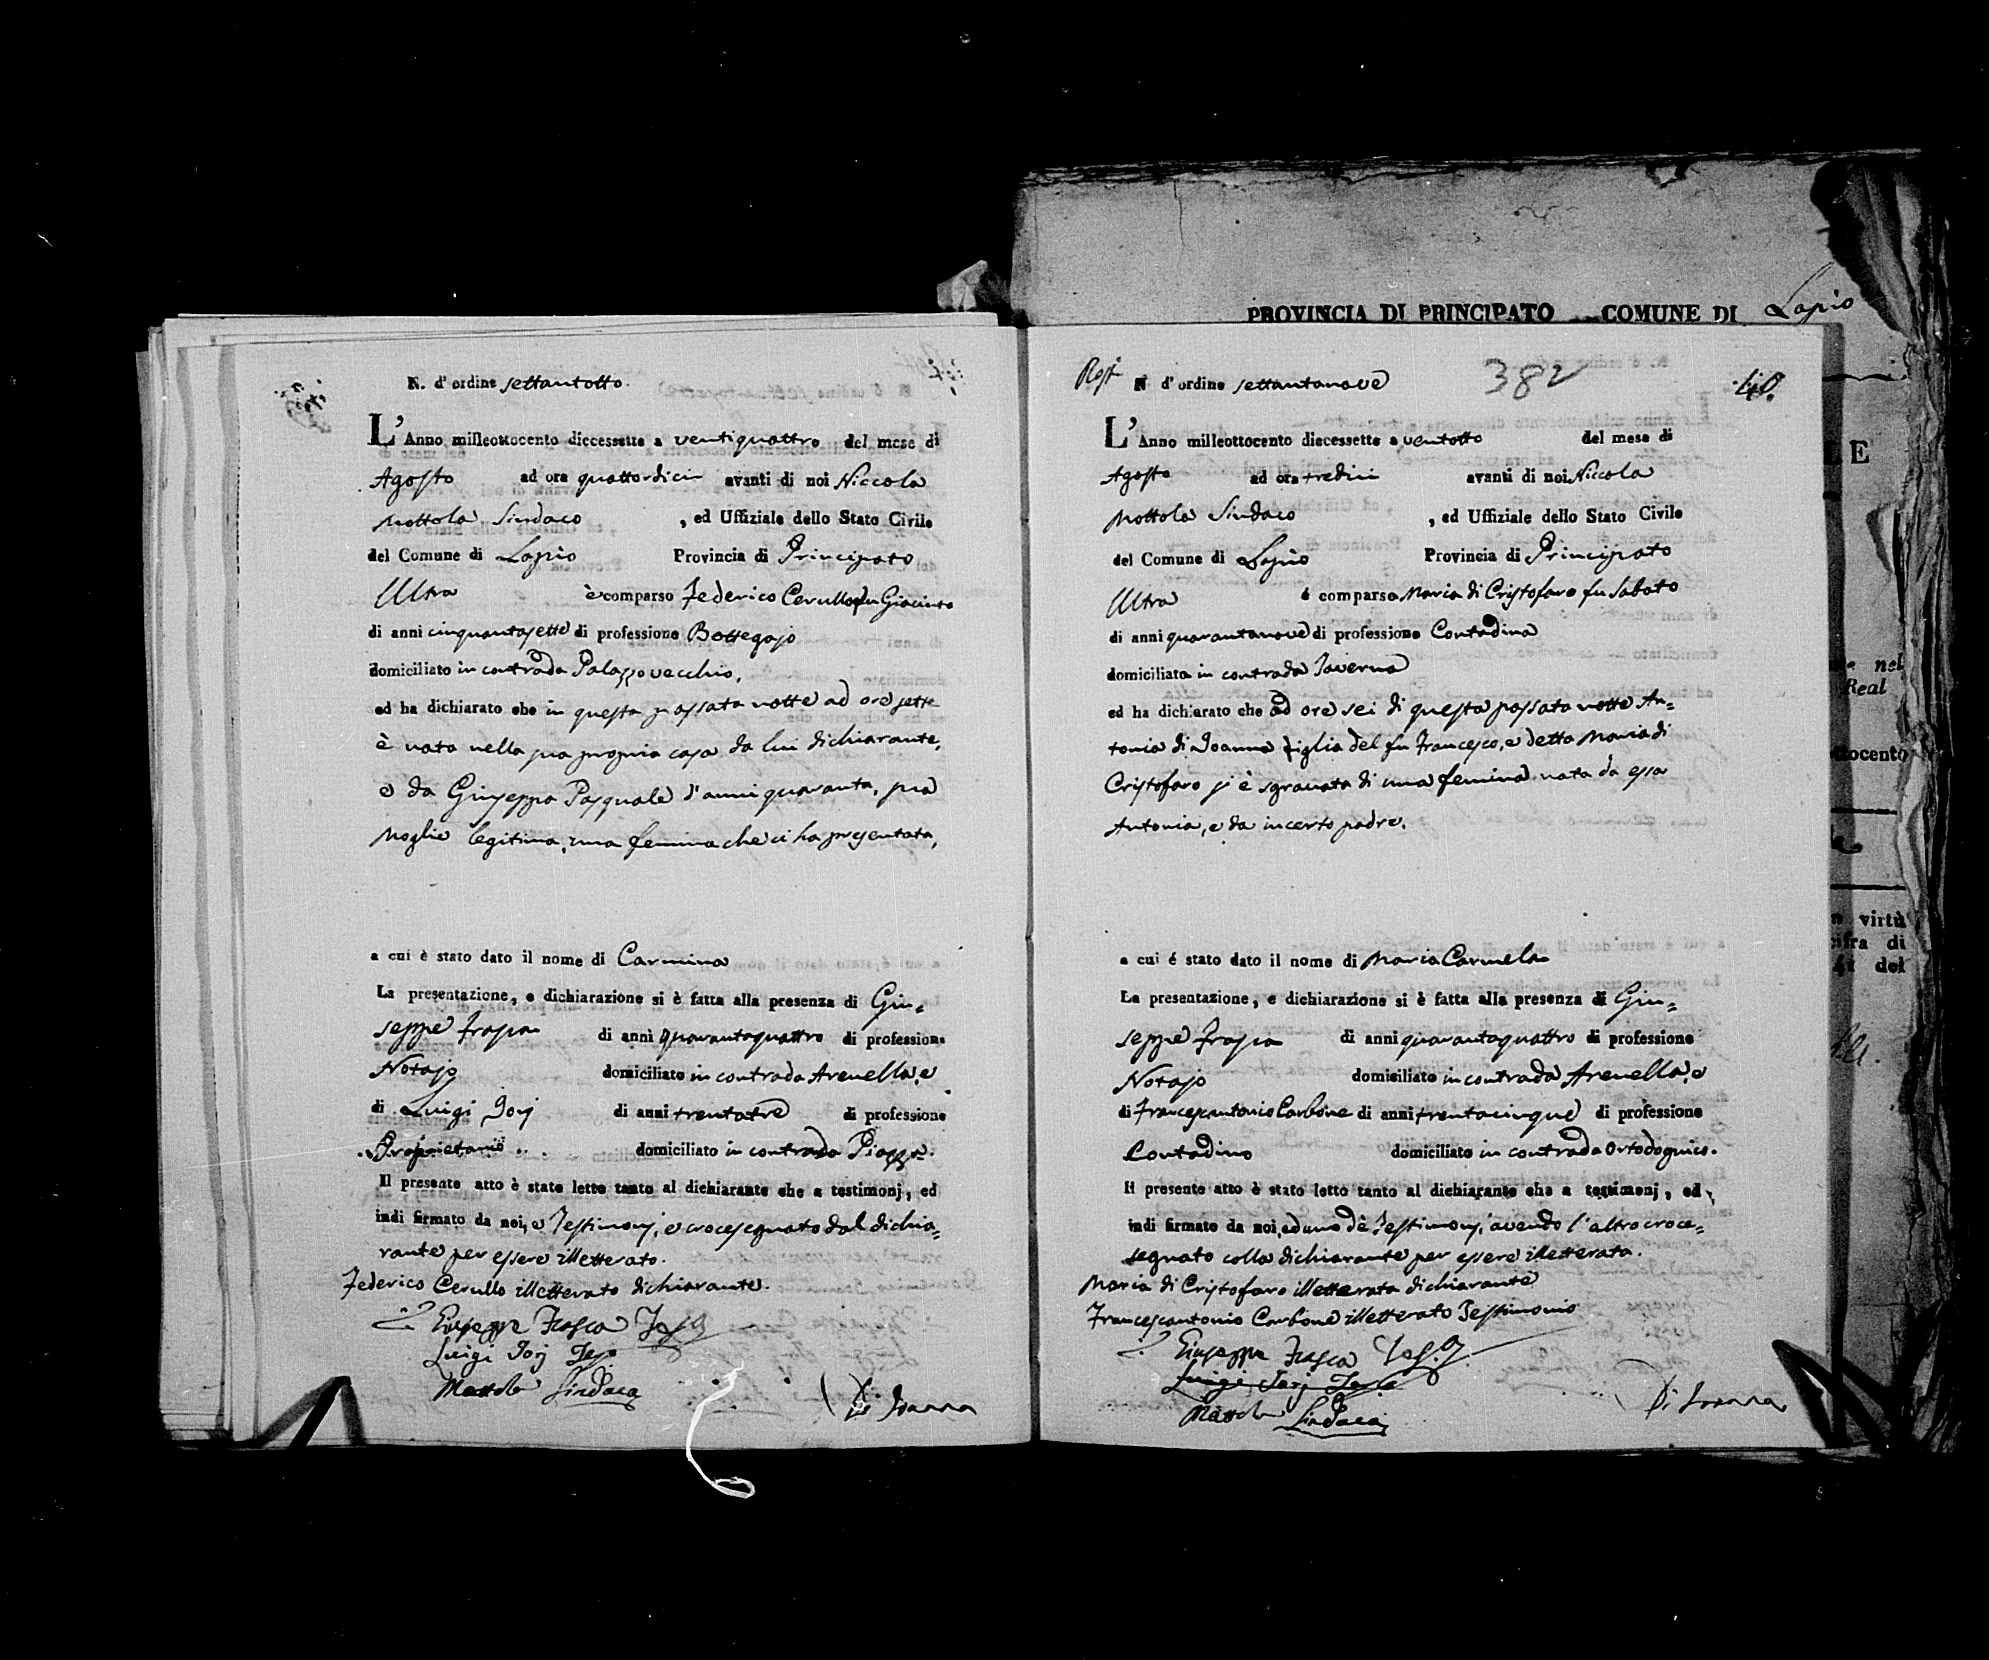 PROVINCIA DI PRINCIPATO COMUNE DI Lapio
N. d'ordine settantotto.
L'Anno milleottocento diecessette a ventiquattro del mese di
Agosto ad ora quattordici avanti di noi Niccola
Mottola Sindaco , ed Uffiziale dello Stato Civile
del Comune di Lapio Provincia di Principato
Ultra è comparso Federico Cerullo fu Giacinto
di anni cinquantasette di professione Bottegajo
domiciliato in contrada Palazzovecchio,
ed ha dichiarato che in questa passata notte ad ore sette
è nata nella sua propria casa da lui dichiarante,
e da Giuseppa Pasquale d'anni quaranta, sua
moglie legittima, una femina che ci ha presentata,
a cui è stato dato il nome di Carmina
La presentazione, e dichiarazione si è fatta alla presenza di Giu=
seppe Frasca di anni quarantaquattro di professione
Notajo domiciliato in contrada Arenella, e
di Luigi Jorj di anni trentatre di professione
Proprietario domiciliato in contrada Piazza.
Il presente atto è stato letto tanto al dichiarante che a testimonj, ed
indi firmato da noi, e Testimonj, e crocesegnato dal dichia=
rante per essere illetterato.
Federico Cerullo illetterato dichiarante.
Giuseppe Frasca
Luigi Jorj
Mottola Sindaco
Di Joanna
N d'ordine settantanove 382 40.
L'Anno milleottocento diecessette a ventotto del mese di
Agosto ad ora tredici avanti di noi Niccola
Mottola Sindaco , ed Uffiziale dello Stato Civile
del Comune di Lapio Provincia di Principato
Ultra è comparsa Maria di Cristofaro fu Sabato
di anni quarantanove di professione Contadina
domiciliata in contrada Taverna
ed ha dichiarato che ad ore sei di questa passata notte An=
tonia di Joanna figlia del fu Francesco, e detta Maria di
Cristofaro s'è sgravata di una femina nata da essa
Antonia, e da incerto padre.
a cui é stato dato il nome di Maria Carmela
La presentazione, e dichiarazione si è fatta alla presenza di Giu=
seppe Frasca di anni quarantaquattro di professione
Notajo domiciliato in contrada Arenella, e
di Francescantonio Carbone di anni trentacinque di professione
Contadino domiciliato in contrada
Il presente atto è stato letto tanto al dichiarante che a testimonj, ed
indi firmato da noi, ed uno dè Testimonj, avendo l'altro croce=
segnato colla dichiarante per essere illetterata.
Maria di Cristofaro illetterata dichiarante
Francescantonio Carbone illetterato Testimonio
Giuseppe Frasca
Luigi Jorj
Mottola Sindaco
Di Joanna
LE
nel
Real
virtù
di
del